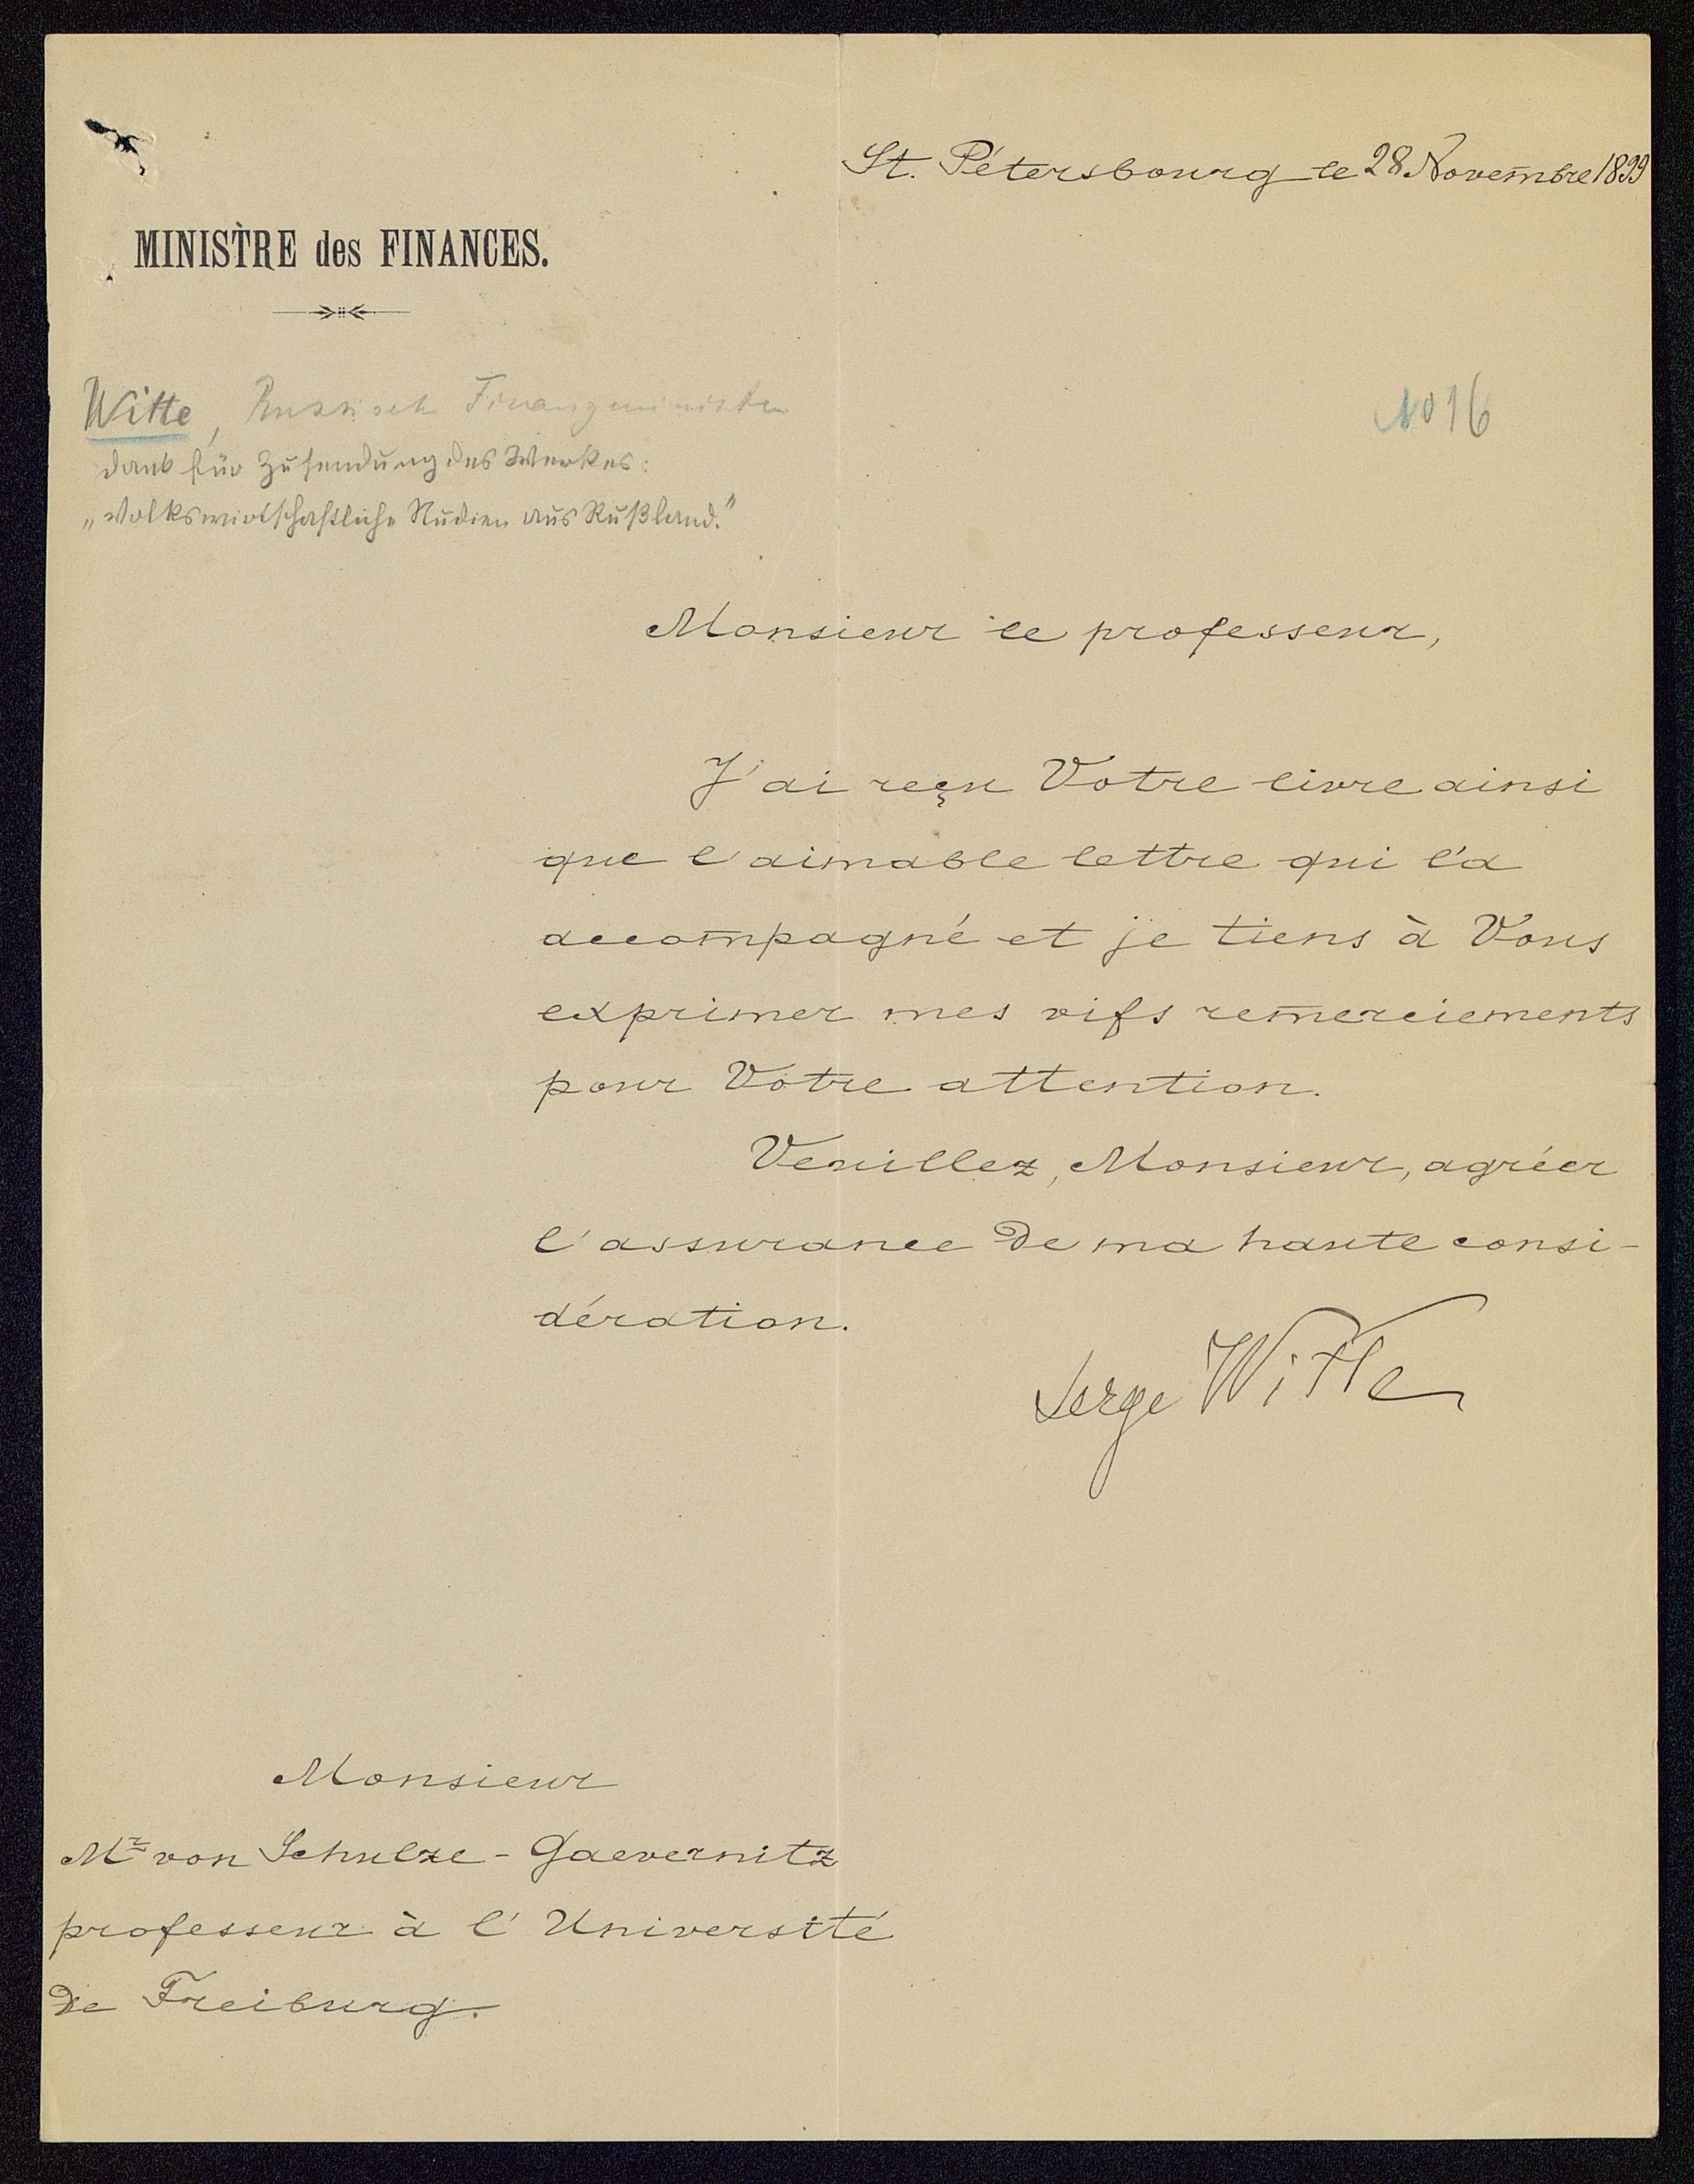 St. Pétersbourg le 28 Novembre 1899
MINISTÈRE des FINANCES.
Witte, Russisch Finanzminister
No 16
dankt für Zusendung des Werkes:
„Volkswirtschaftliche Studien aus Rußland."
Monsieur le professeur,
J'ai reçu Votre livre ainsi
que l'aimable lettre qui l'a
accompagné et je tiens à Vous
exprimer mes vifs remerciements
pour Votre attention.
Veuillez, Monsieur, agréer
l'assurance de ma haute consi-
dération.
Serge Witte
Monsieur
Mr von Schulze-Gaevernitz
professeur à l'Université
de Freiburg.